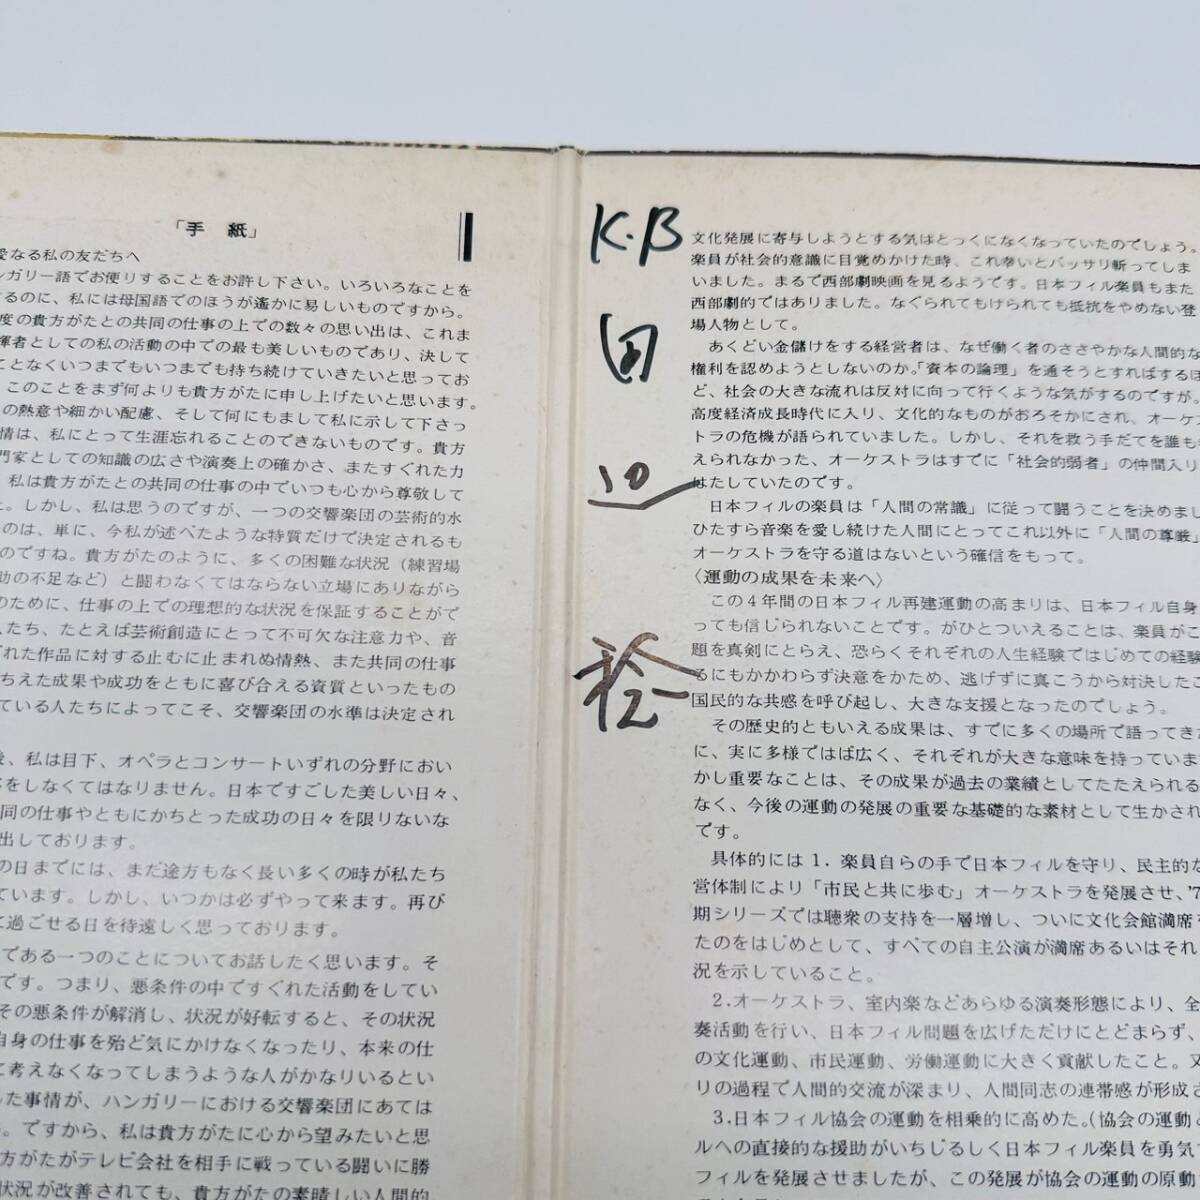 「手紙」
愛なる私の友だちへ
ンガリー語でお便りすることをお許し下さい。いろいろなことを
するのに、私には母国語でのほうが遙かに易しいものですから。
度の貴方がたとの共同の仕事の上での数々の思い出は、これま
揮者としての私の活動の中での最も美しいものであり、決して
ことなくいつまでもいつまでも持ち続けていきたいと思ってお
。このことをまず何よりも貴方がたに申し上げたいと思います。
の熱意や細かい配慮、そして何にもまして私に示して下さっ
情は、私にとって生涯忘れることのできないものです。貴方
門家としての知識の広さや演奏上の確かさ、またすぐれた力
、私は貴方がたとの共同の仕事の中でいつも心から尊敬して
た。しかし、私は思うのですが、一つの交響楽団の芸術的水
のは、単に、今私が述べたような特質だけで決定されるも
のですね。貴方がたのように、多くの困難な状況（練習場
助の不足など）と闘わなくてはならない立場にありながら
のために、仕事の上での理想的な状況を保証することがで
たち、たとえば芸術創造にとって不可欠な注意力や、音
れた作品に対する止むに止まれぬ情熱、また共同の仕事
ちえた成果や成功をともに喜び合える資質といったもの
ている人たちによってこそ、交響楽団の水準は決定され
後、私は目下、オペラとコンサートいずれの分野におい
をしなくてはなりません。日本ですごした美しい日々、
同の仕事やともにかちとった成功の日々を限りないな
出しております。
の日までには、まだ途方もなく長い多くの時が私たち
ています。しかし、いつかは必ずやって来ます。再び
に過ごせる日を待遠しく思っております。
である一つのことについてお話したく思います。そ
です。つまり、悪条件の中ですぐれた活動をしてい
その悪条件が解消し、状況が好転すると、その状況
自身の仕事を殆ど気にかけなくなったり、本来の仕
に考えなくなってしまうような人がかなりいるとい
した事情が、ハンガリーにおける交響楽団にあては
。ですから、私は貴方がたに心から望みたいと思
方がたがテレビ会社を相手に戦っている闘いに勝
状況が改善されても、貴方がたの素晴しい人間的
K.B
田
辺
稔
文化発展に寄与しようとする気はとっくになくなっていたのでしょう。
楽員が社会的意識に目覚めかけた時、これ幸いとバッサリ斬ってしま
いました。まるで西部劇映画を見るようです。日本フィル楽員もまた
西部劇的ではありました。なぐられてもけられても抵抗をやめない登
場人物として。
あくどい金儲けをする経営者は、なぜ働く者のささやかな人間的な
権利を認めようとしないのか。「資本の論理」を通そうとすればするほ
ど、社会の大きな流れは反対に向って行くような気がするのですが。
高度経済成長時代に入り、文化的なものがおろそかにされ、オーケス
トラの危機が語られていました。しかし、それを救う手だてを誰も考
えられなかった、オーケストラはすでに「社会的弱者」の仲間入り
はたしていたのです。
日本フィルの楽員は「人間の常識」に従って闘うことを決めまし
ひたすら音楽を愛し続けた人間にとってこれ以外に「人間の尊厳」
オーケストラを守る道はないという確信をもって。
〈運動の成果を未来へ〉
この4年間の日本フィル再建運動の高まりは、日本フィル自身
っても信じられないことです。がひとついえることは、楽員がこ
題を真剣にとらえ、恐らくそれぞれの人生経験ではじめての経験
るにもかかわらず決意をかため、逃げずに真こうから対決したこ
国民的な共感を呼び起し、大きな支援となったのでしょう。
その歴史的ともいえる成果は、すでに多くの場所で語ってきた
に、実に多様ではば広く、それぞれが大きな意味を持っていま
かし重要なことは、その成果が過去の業績としてたたえられる
なく、今後の運動の発展の重要な基礎的な素材として生かされ
です。
具体的には1．楽員自らの手で日本フィルを守り、民主的な
営体制により「市民と共に歩む」オーケストラを発展させ、'7
期シリーズでは聴衆の支持を一層増し、ついに文化会館満席
たのをはじめとして、すべての自主公演が満席あるいはそれ
況を示していること。
2.オーケストラ、室内楽などあらゆる演奏形態により、全
奏活動を行い、日本フィル問題を広げただけにとどまらず、
の文化運動、市民運動、労働運動に大きく貢献したこと。又
りの過程で人間的交流が深まり、人間同志の連帯感が形成さ
3.日本フィル協会の運動を相乗的に高めた。(協会の運動と
ルへの直接的な援助がいちじるしく日本フィル楽員を勇気
フィルを発展させましたが、この発展が協会の運動の原動